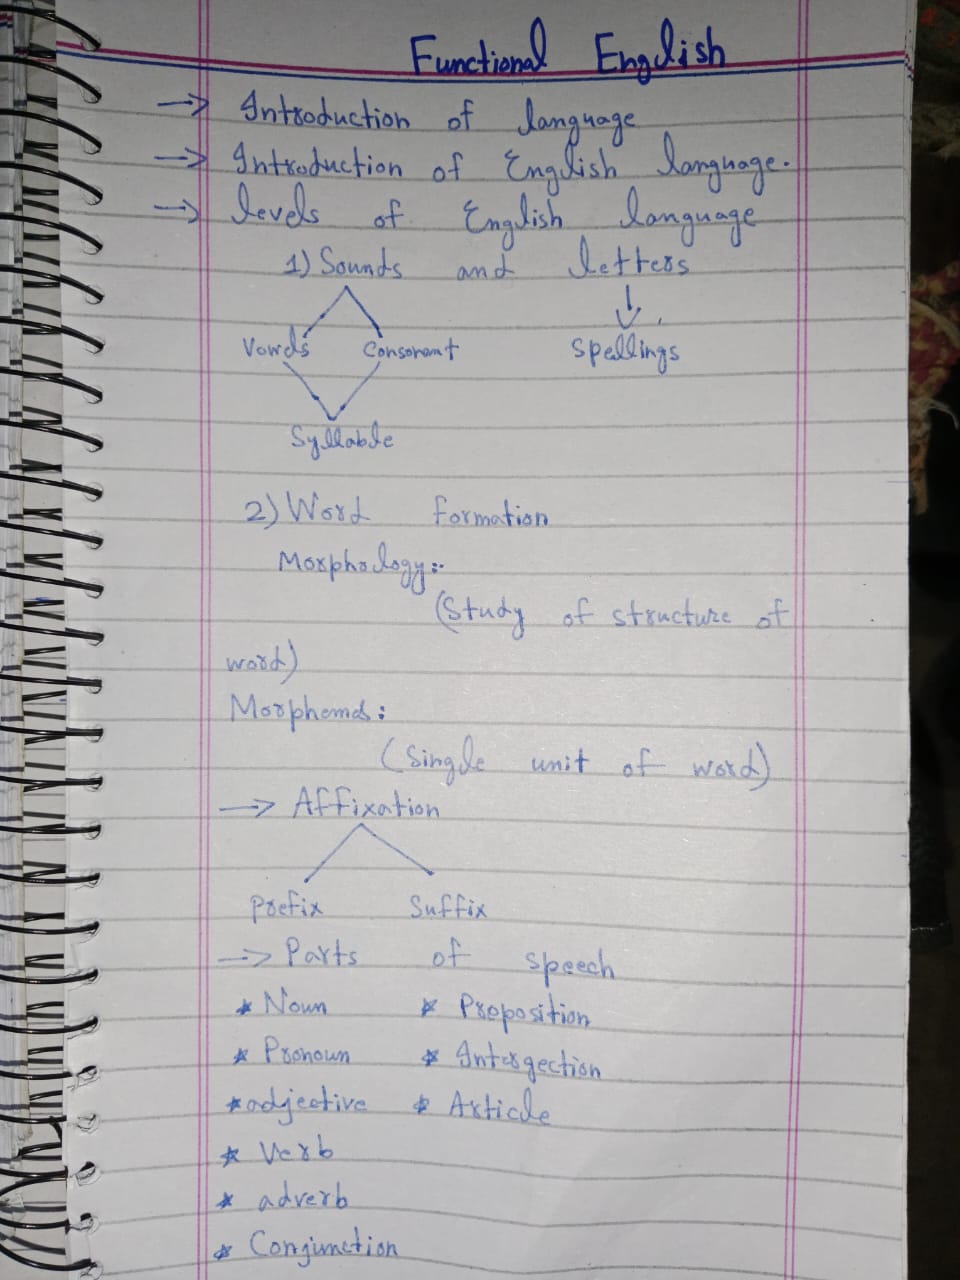 Functional English
→ Introduction of language
→ Introduction of English language.
→ levels of English language
1) Sounds and letters
Vowels Consonant Spellings
Syllable
2) Word formation
Morphology:-
(Study of structure of
word)
Morphemes:
(Single unit of word)
→ Affixation
Prefix Suffix
→ Parts of speech
* Noun * Preposition
* Pronoun * Intergection
* adjective * Article
* Verb
* adverb
* Conjunction